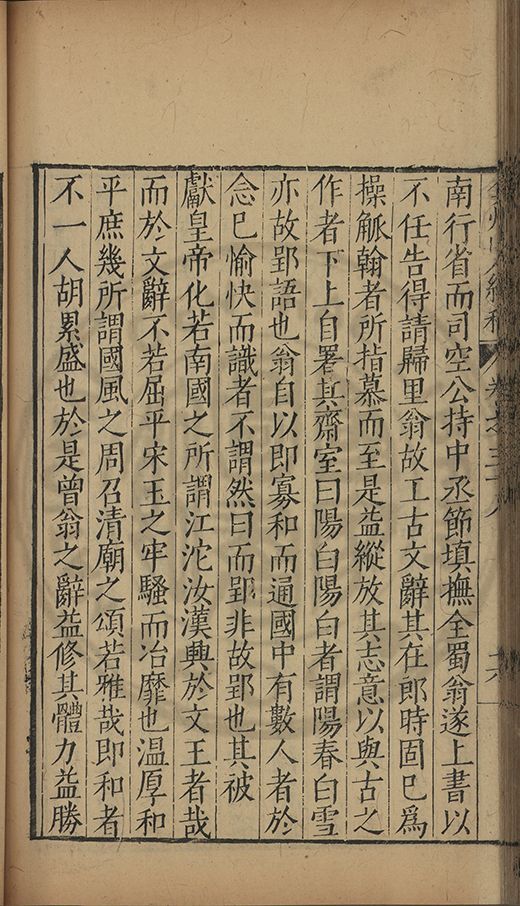 弇州山人續稿 卷之三十八 十六
南行省而司空公持中丞節填撫全蜀翁遂上書以
不任告得請歸里翁故工古文辭其在郎時固已爲
操觚翰者所指慕而至是益縱放其志意以與古之
作者下上自署其齋室曰陽白陽白者謂陽春白雪
亦故郢語也翁自以即寡和而通國中有數人者於
念已愉快而識者不謂然曰而郢非故郢也其被
獻皇帝化若南國之所謂江沱汝漢興於文王者哉
而於文辭不若屈平宋玉之牢騷而冶靡也温厚和
平庶幾所謂國風之周召清廟之頌若雅哉即和者
不一人胡累盛也於是曾翁之辭益修其體力益勝